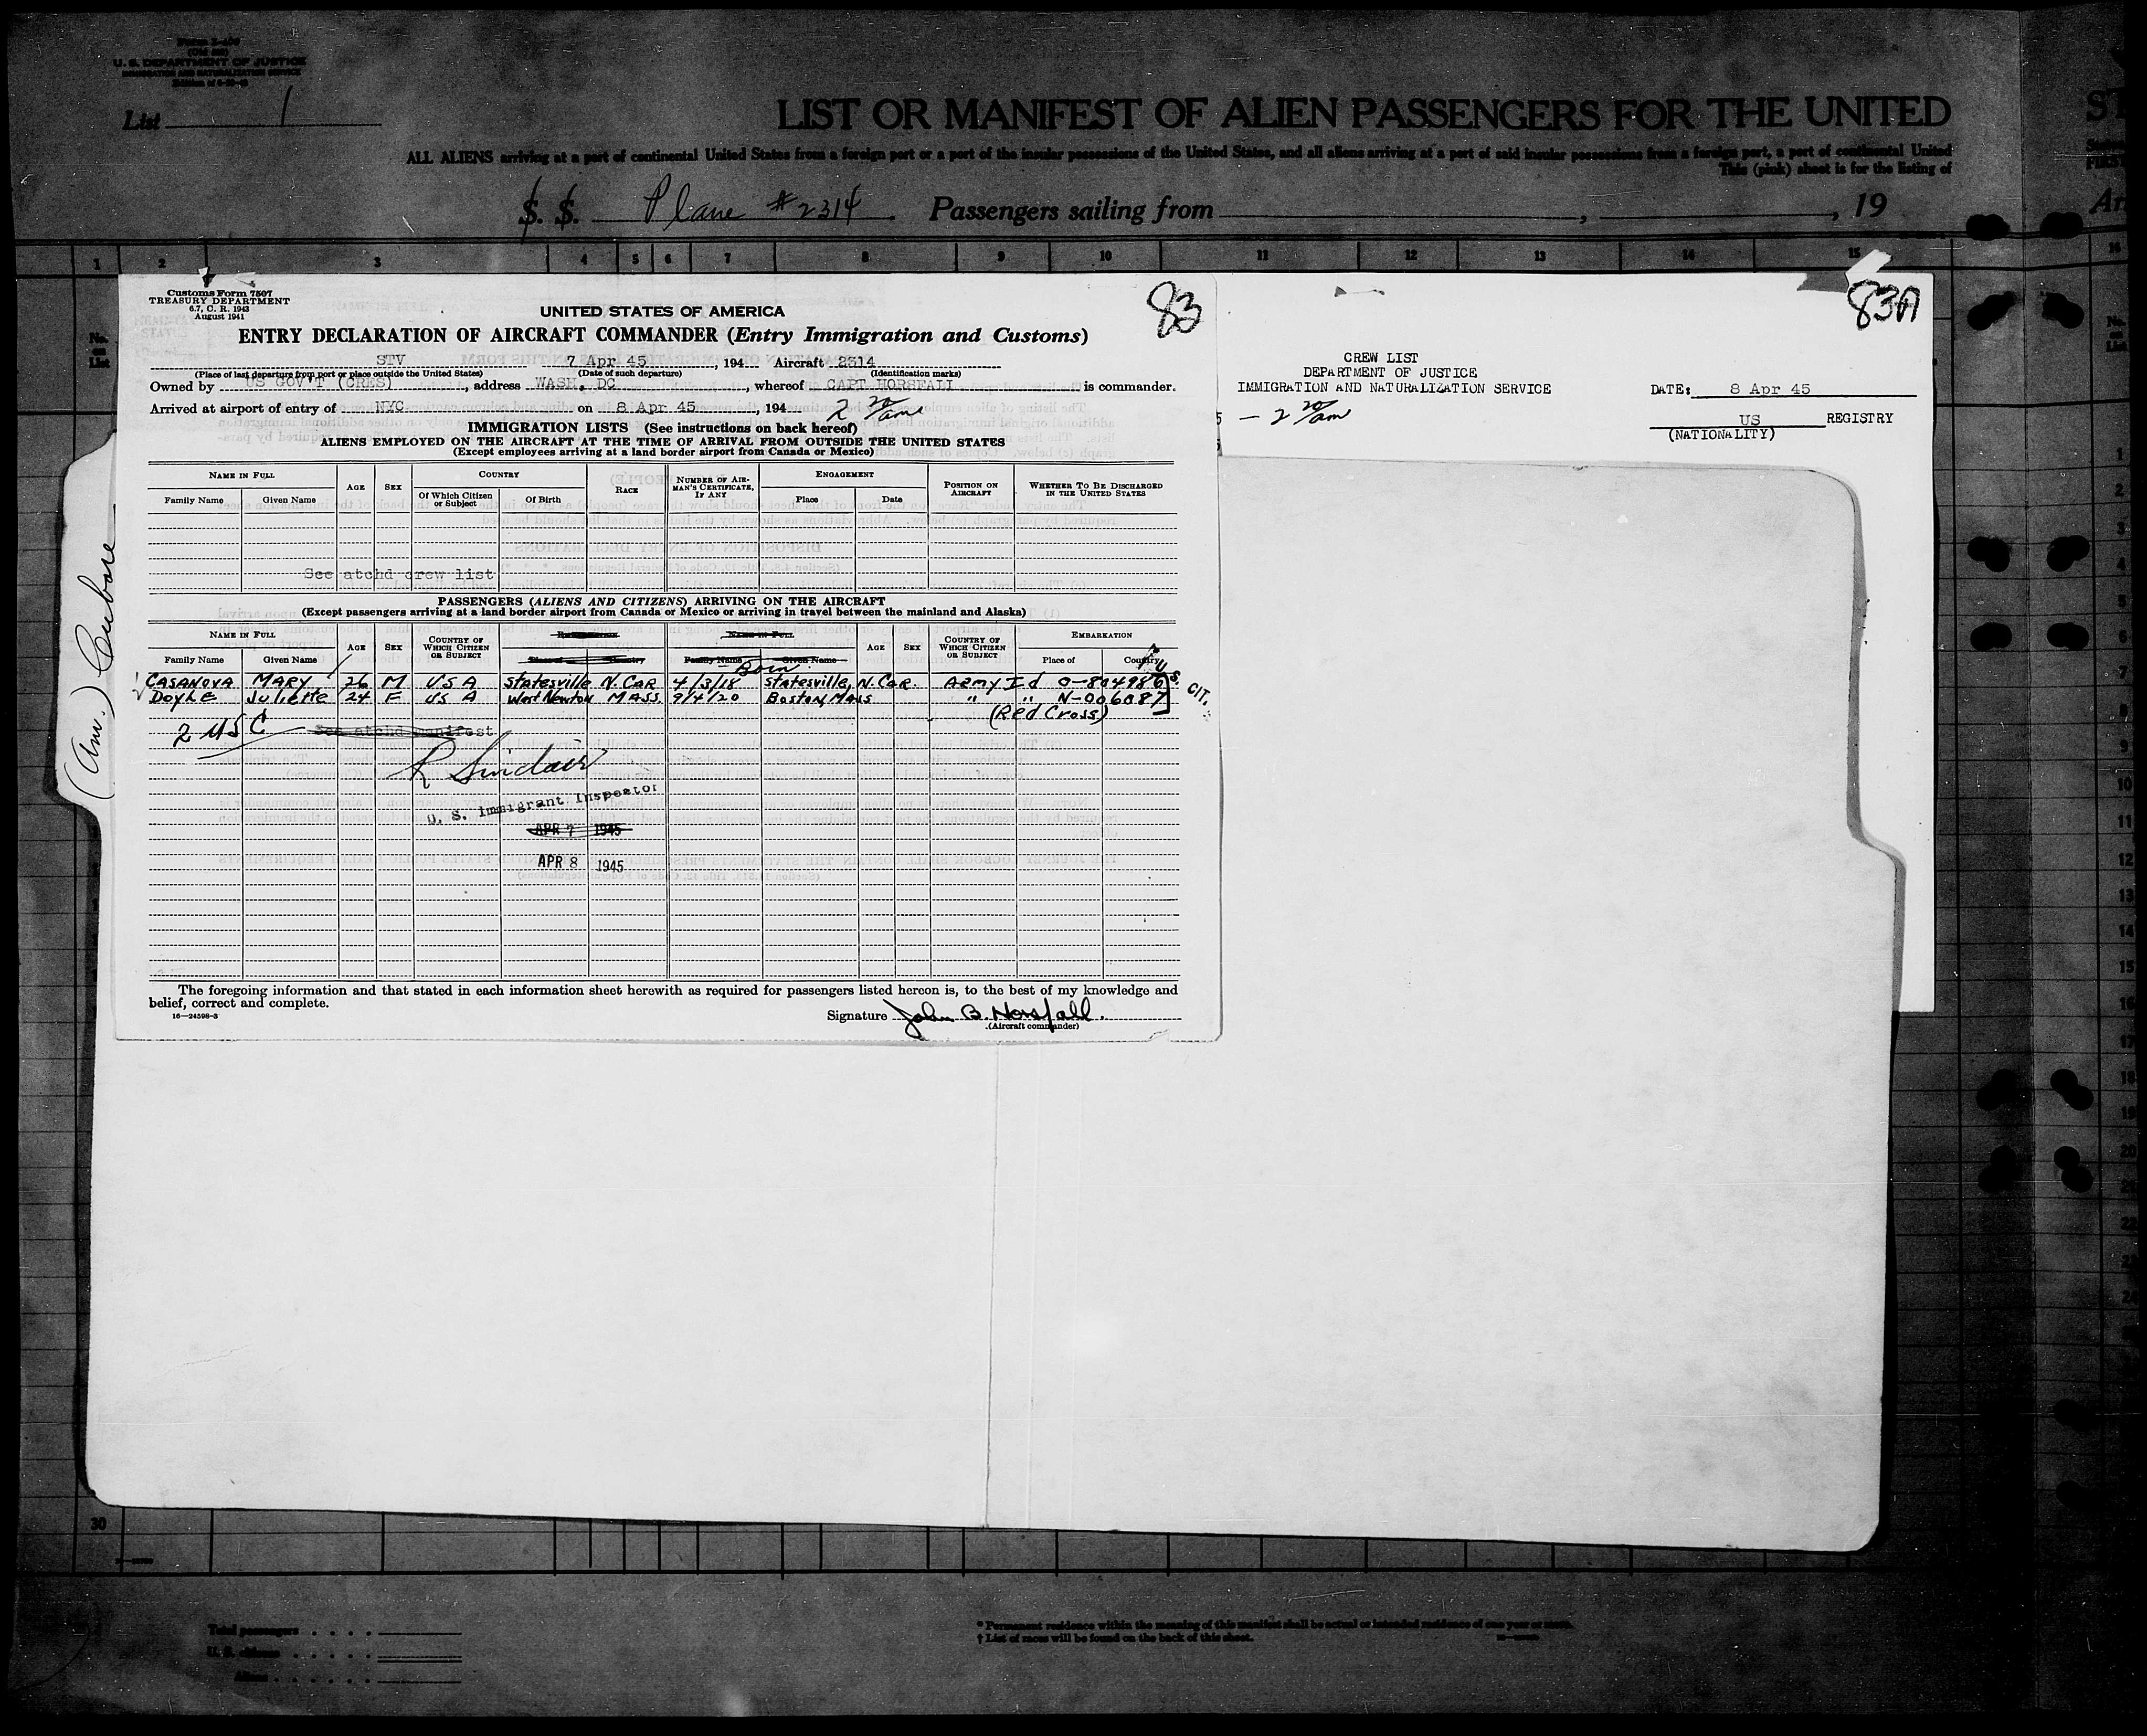 Form I-409
U. S. DEPARTMENT OF JUSTICE
IMMIGRATION AND NATURALIZATION SERVICE
List 1
LIST OR MANIFEST OF ALIEN PASSENGERS FOR THE UNITED
ALL ALIENS arriving at a port of continental United States from a foreign port or a port of the insular possessions of the United States, and all aliens arriving at a port of said insular possessions from a foreign port, a port of continental United
This (pink) sheet is for the listing of
S. S. Plane #2314 Passengers sailing from , , 19
1 2 3 4 5 6 7 8 9 10 11 12 13 14 15 16
No. on List
Customs Form 7507
TREASURY DEPARTMENT
6.7, C. R. 1943
August 1941
83
UNITED STATES OF AMERICA
ENTRY DECLARATION OF AIRCRAFT COMMANDER (Entry Immigration and Customs)
STV 7 Apr 45, 194 Aircraft 2314
(Place of last departure from port or place outside the United States) (Date of such departure) (Identification marks)
Owned by US GOV'T (CRES), address WASH, DC, whereof CAPT HORSFALL is commander.
Arrived at airport of entry of NYC on 8 Apr 45, 194 2 20/am
IMMIGRATION LISTS (See instructions on back hereof)
ALIENS EMPLOYED ON THE AIRCRAFT AT THE TIME OF ARRIVAL FROM OUTSIDE THE UNITED STATES
(Except employees arriving at a land border airport from Canada or Mexico)
NAME IN FULL AGE SEX COUNTRY RACE NUMBER OF AIRMAN'S CERTIFICATE, IF ANY ENGAGEMENT POSITION ON AIRCRAFT WHETHER TO BE DISCHARGED IN THE UNITED STATES
Family Name Given Name Of Which Citizen or Subject Of Birth Place Date
See atchd crew list
PASSENGERS (ALIENS AND CITIZENS) ARRIVING ON THE AIRCRAFT
(Except passengers arriving at a land border airport from Canada or Mexico or arriving in travel between the mainland and Alaska)
NAME IN FULL AGE SEX COUNTRY OF WHICH CITIZEN OR SUBJECT NAME IN FULL AGE SEX COUNTRY OF WHICH CITIZEN OR SUBJECT EMBARKATION
Family Name Given Name Place of Country Family Name Given Name Place of Country
Born
CASANOVA MARY 26 M USA Statesville N.CAR 4/3/18 Statesville, N.Car. Army Id O-804986
DOYLE Juliette 24 F US A West Newton MASS. 9/4/20 Boston, Mass " " N-006087
U.S. CIT.
(Red Cross)
2 USC See atchd manifest
R Sinclair
U. S. Immigrant Inspector
APR 7 1945
APR 8 1945
The foregoing information and that stated in each information sheet herewith as required for passengers listed hereon is, to the best of my knowledge and
belief, correct and complete.
16—24598-3
Signature John B. Horsfall.
(Aircraft commander)
83A
CREW LIST
DEPARTMENT OF JUSTICE
IMMIGRATION AND NATURALIZATION SERVICE
DATE: 8 Apr 45
- 2 20/am
US REGISTRY
(NATIONALITY)
30
Total passengers
U. S. citizens
Aliens
* Permanent residence within the meaning of this manifest shall be actual or intended residence of one year or more.
† List of races will be found on the back of this sheet.